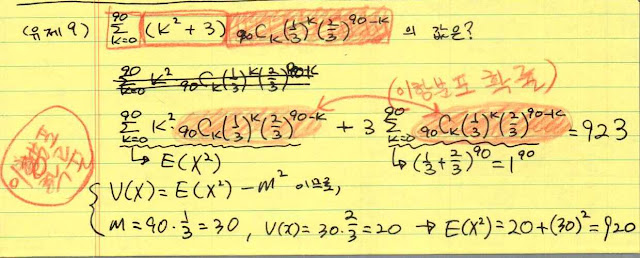 (유제 9) ∑_{k=0}^{90} (k² + 3) ₉₀C_k (1/3)^k (2/3)^{90-k} 의 값은?
∑_{k=0}^{90} k² ₉₀C_k (1/3)^k (2/3)^{90-k}
(이항분포 확률)
∑_{k=0}^{90} k² · ₉₀C_k (1/3)^k (2/3)^{90-k} + 3 ∑_{k=0}^{90} ₉₀C_k (1/3)^k (2/3)^{90-k} = 923
↳ E(X²) ↳ (1/3 + 2/3)^{90} = 1^{90}
V(X) = E(X²) - m² 이므로,
m = 90 · 1/3 = 30, V(X) = 30 · 2/3 = 20 → E(X²) = 20 + (30)² = 920